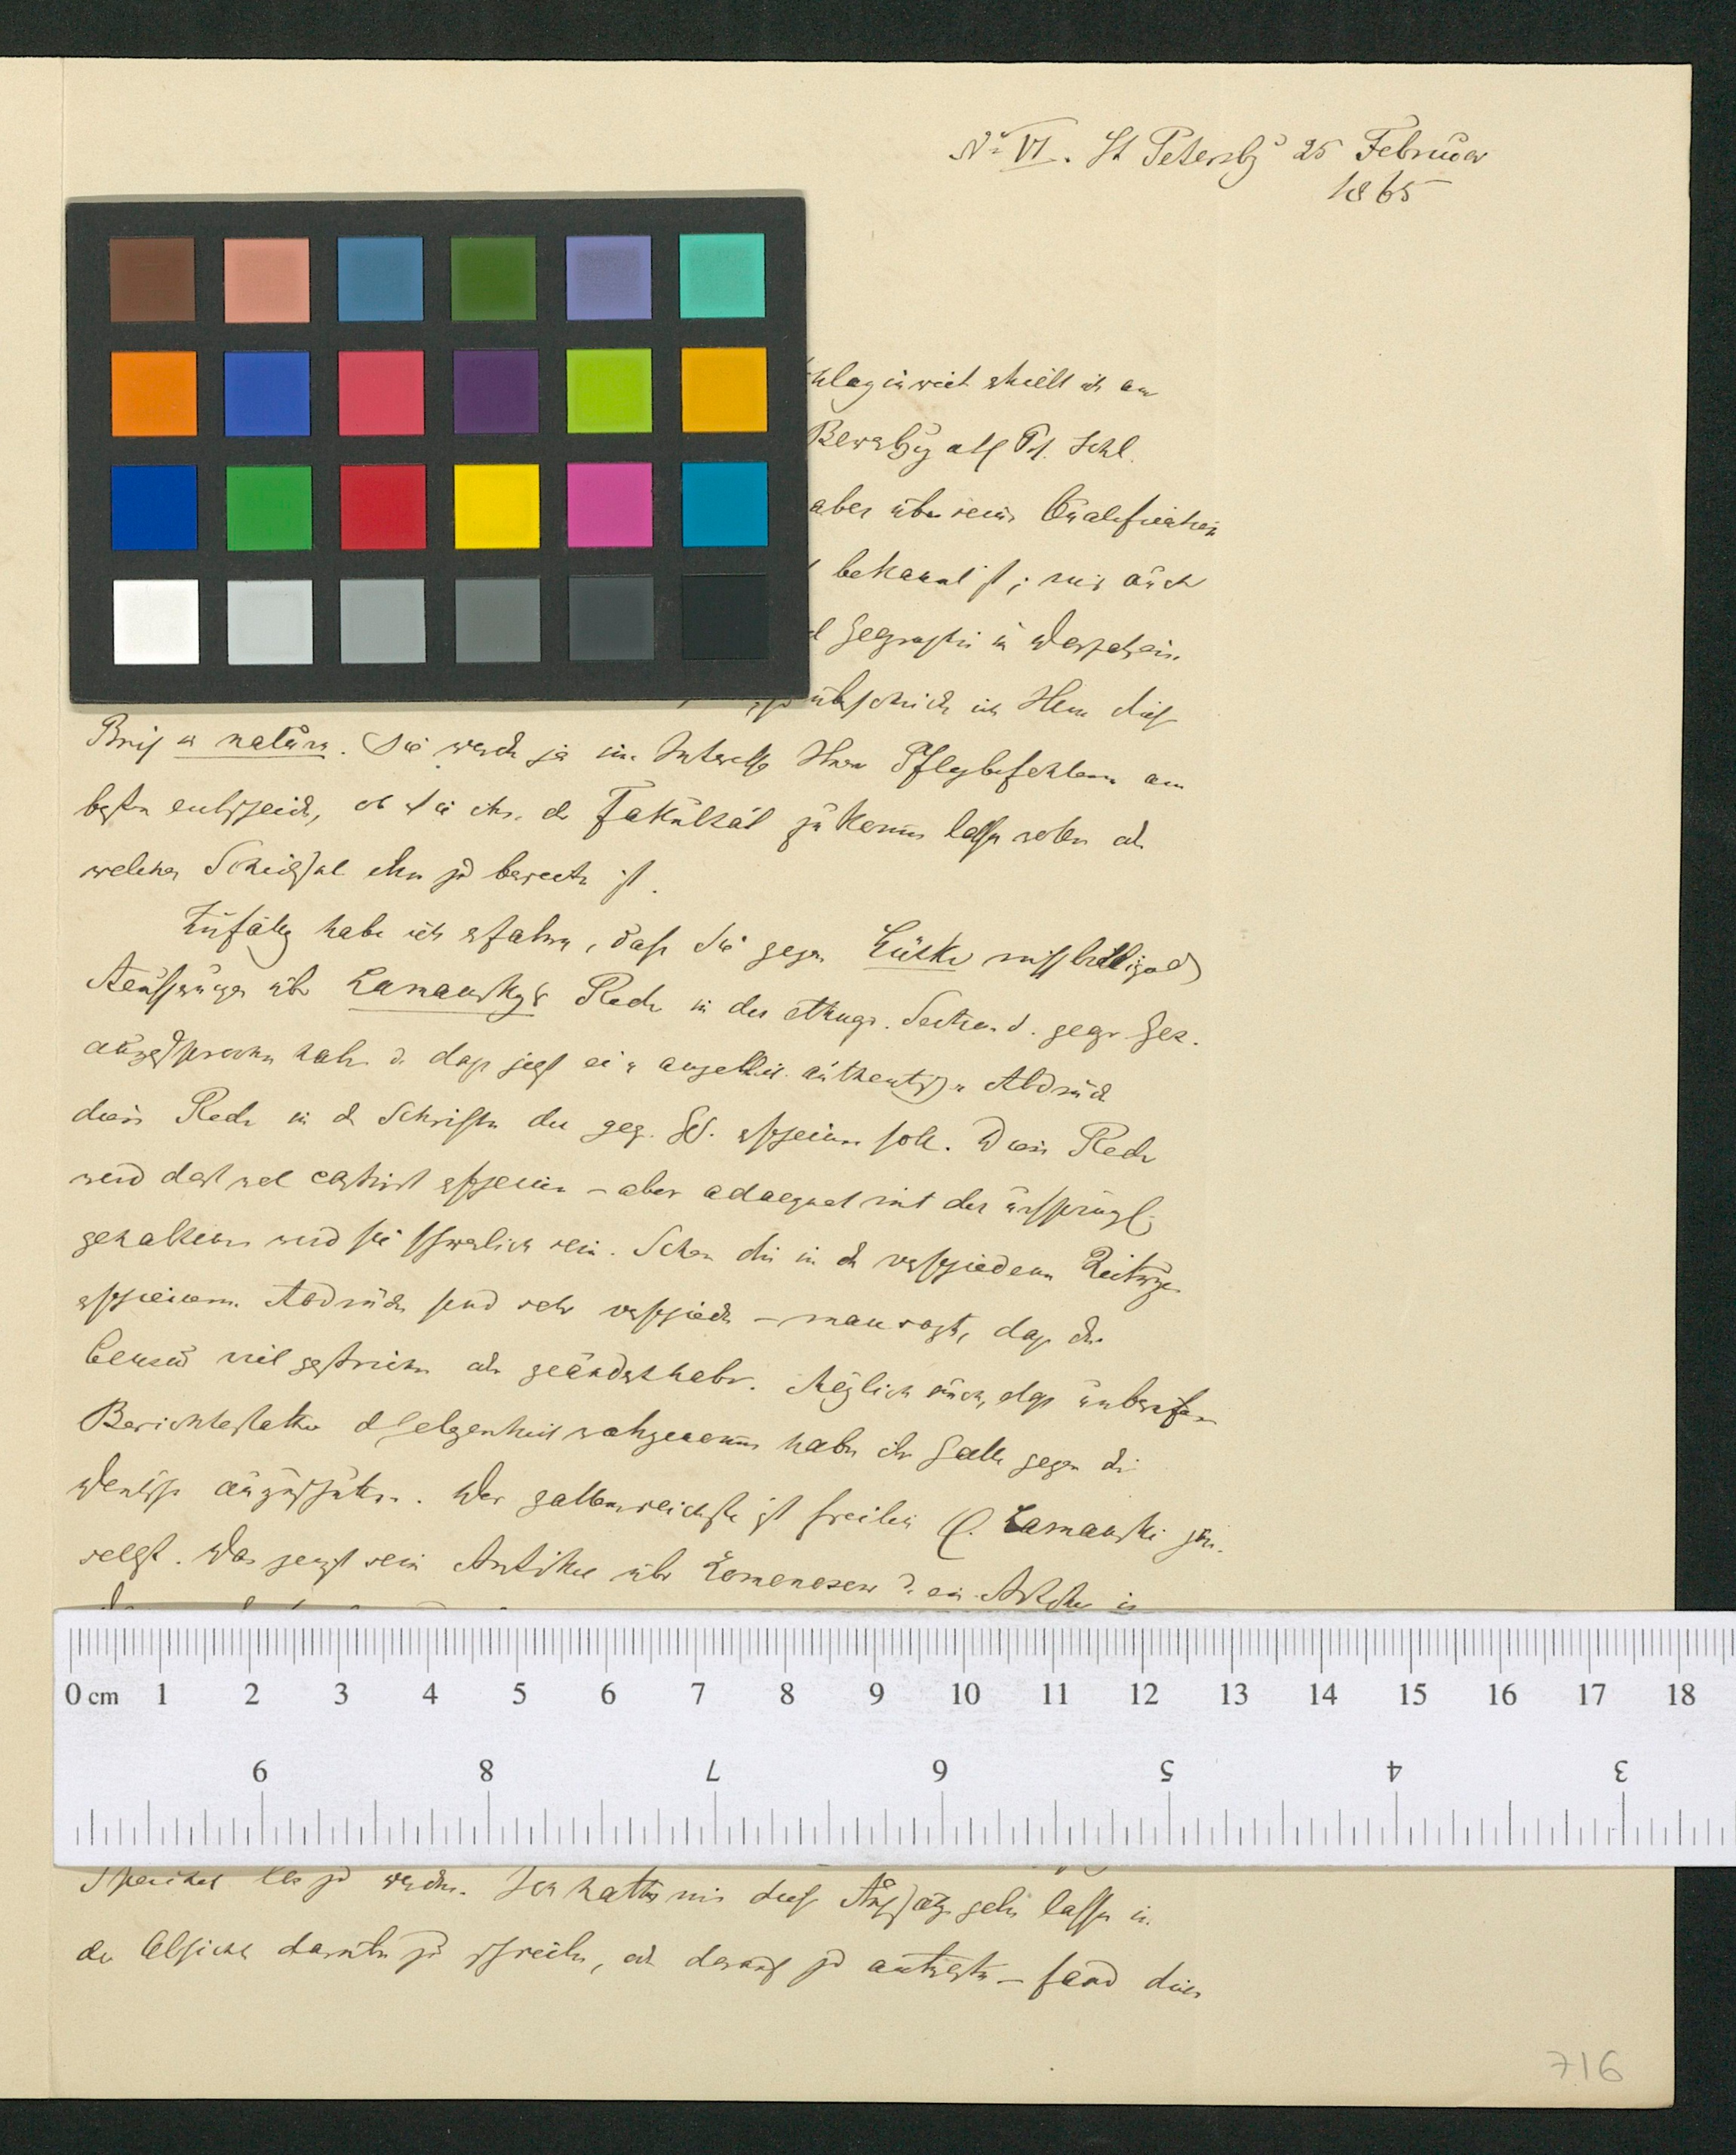 No VI. St Petersbg 25 Februar
1865
erhielt ich am
aber über seine Qualification
bekannt ist; mir auch
ich Ihnen diesen
Brief in natura. Sie werden ja im Interesse Ihrer Pflegbefohlenen am
besten entscheiden, ob Sie ihn der Fakultät zukommen lassen wollen od.
welches Schicksal ihm zu bereiten ist.
Zufällig habe ich erfahren, dass Sie gegen Lütke missbilligende
Aeusserungen über Lamanskys Rede in der ethngr. Section d. geogr. Ges.
ausgesprochen haben u. dass jetzt ein angeblich authentischer Abdruck
dieser Rede in d Schriften der geog. Ges. erscheinen soll. Diese Rede
wird dort wol castrirt erscheinen – aber adaequat mit der ursprüngl.
gehaltenen wird sie schwerlich sein. Schon die in den verschiedenen Zeitungen
erschienenen Abdrücke sind sehr verschieden – man sagt, dass die
Censur viel gestrichen od. geändert habe. Möglich auch, dass unberufene
Berichterstatter d Gelegenheit wahrgenommen haben ihre Galle gegen die
Deutschen auszuschütten. Der gallenreichste ist freilich Lamanski jun.
selbst. Das zeigt sein Artikel über Lomonosow u. ein Artikel in
los zu werden. Ich hatte mir diese Aufsätze geben lassen in
der Absicht darüber zu schreiben, od. darauf zu antworten – fand dies
716
0 cm 1 2 3 4 5 6 7 8 9 10 11 12 13 14 15 16 17 18
9 8 7 6 5 4 3